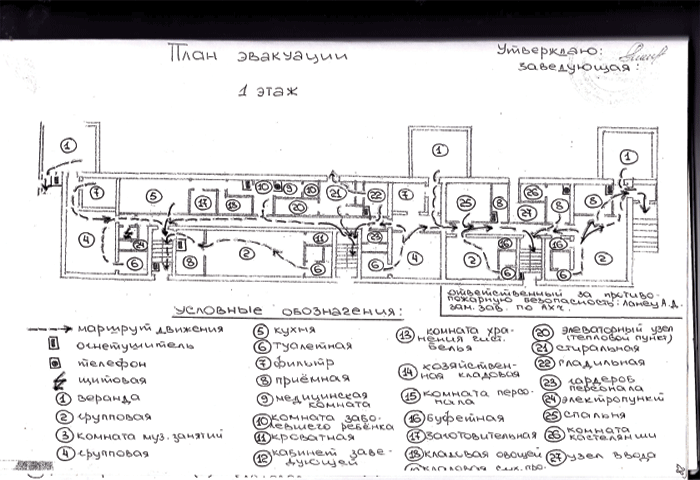 План эвакуации
Утверждаю:
заведующая:
1 этаж
1 1 1
7 5 10 9 10 21 22 7 26 8 8
17 18 20 25 8 27
4 24 2 11 23 16 16
6 8 6 6 4 2 6 6 2
ответственный за противо-
пожарную безопасность: Ланец А.Д.
зам. зав. по АХЧ.
Условные обозначения:
маршрут движения
огнетушитель
телефон
щитовая
1 веранда
2 групповая
3 комната муз. занятий
4 групповая
5 кухня
6 туалетная
7 фильтр
8 приёмная
9 медицинская
комната
10 комната забо-
левшего ребёнка
11 кроватная
12 кабинет заве-
дующей
13 комната хра-
нения чист.
белья
14 хозяйствен-
ная кладовая
15 комната персо-
нала
16 буфетная
17 заготовительная
18 кладовая овощей
20 элеваторный узел
(тепловой пункт)
21 стиральная
22 гладильная
23 гардероб
персонала
24 электропункт
25 спальня
26 комната
кастелянши
27 узел ввода